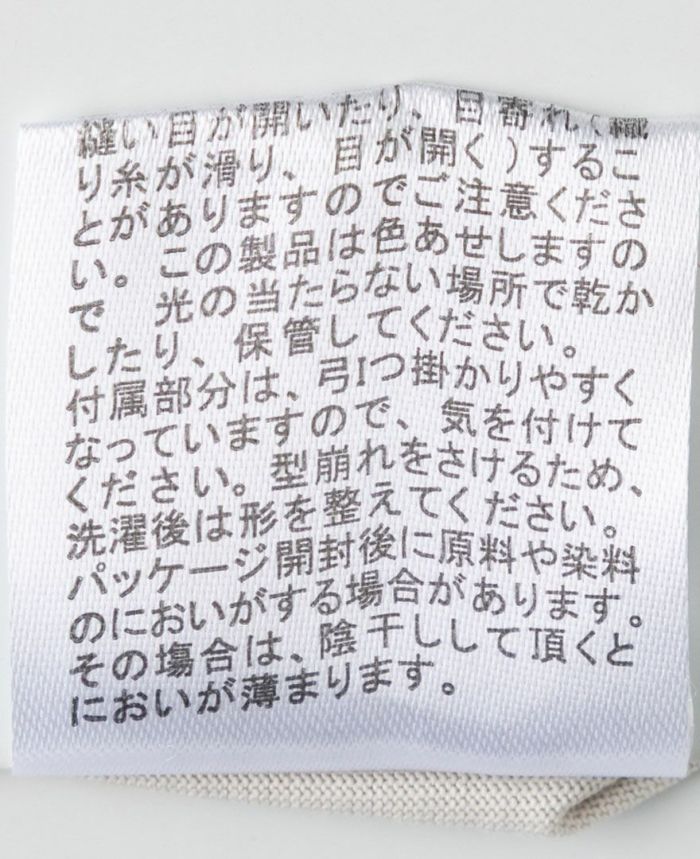 縫い目が開いたり、目寄れ(織
り糸が滑り、目が開く)するこ
とがありますのでご注意くださ
い。この製品は色あせしますの
で光の当たらない場所で乾か
したり、保管してください。
付属部分は、弓Iつ掛かりやすく
なっていますので、気を付けて
ください。型崩れをさけるため、
洗濯後は形を整えてください。
パッケージ開封後に原料や染料
のにおいがする場合があります。
その塲合は、陰干しして頂くと
においが薄まります。